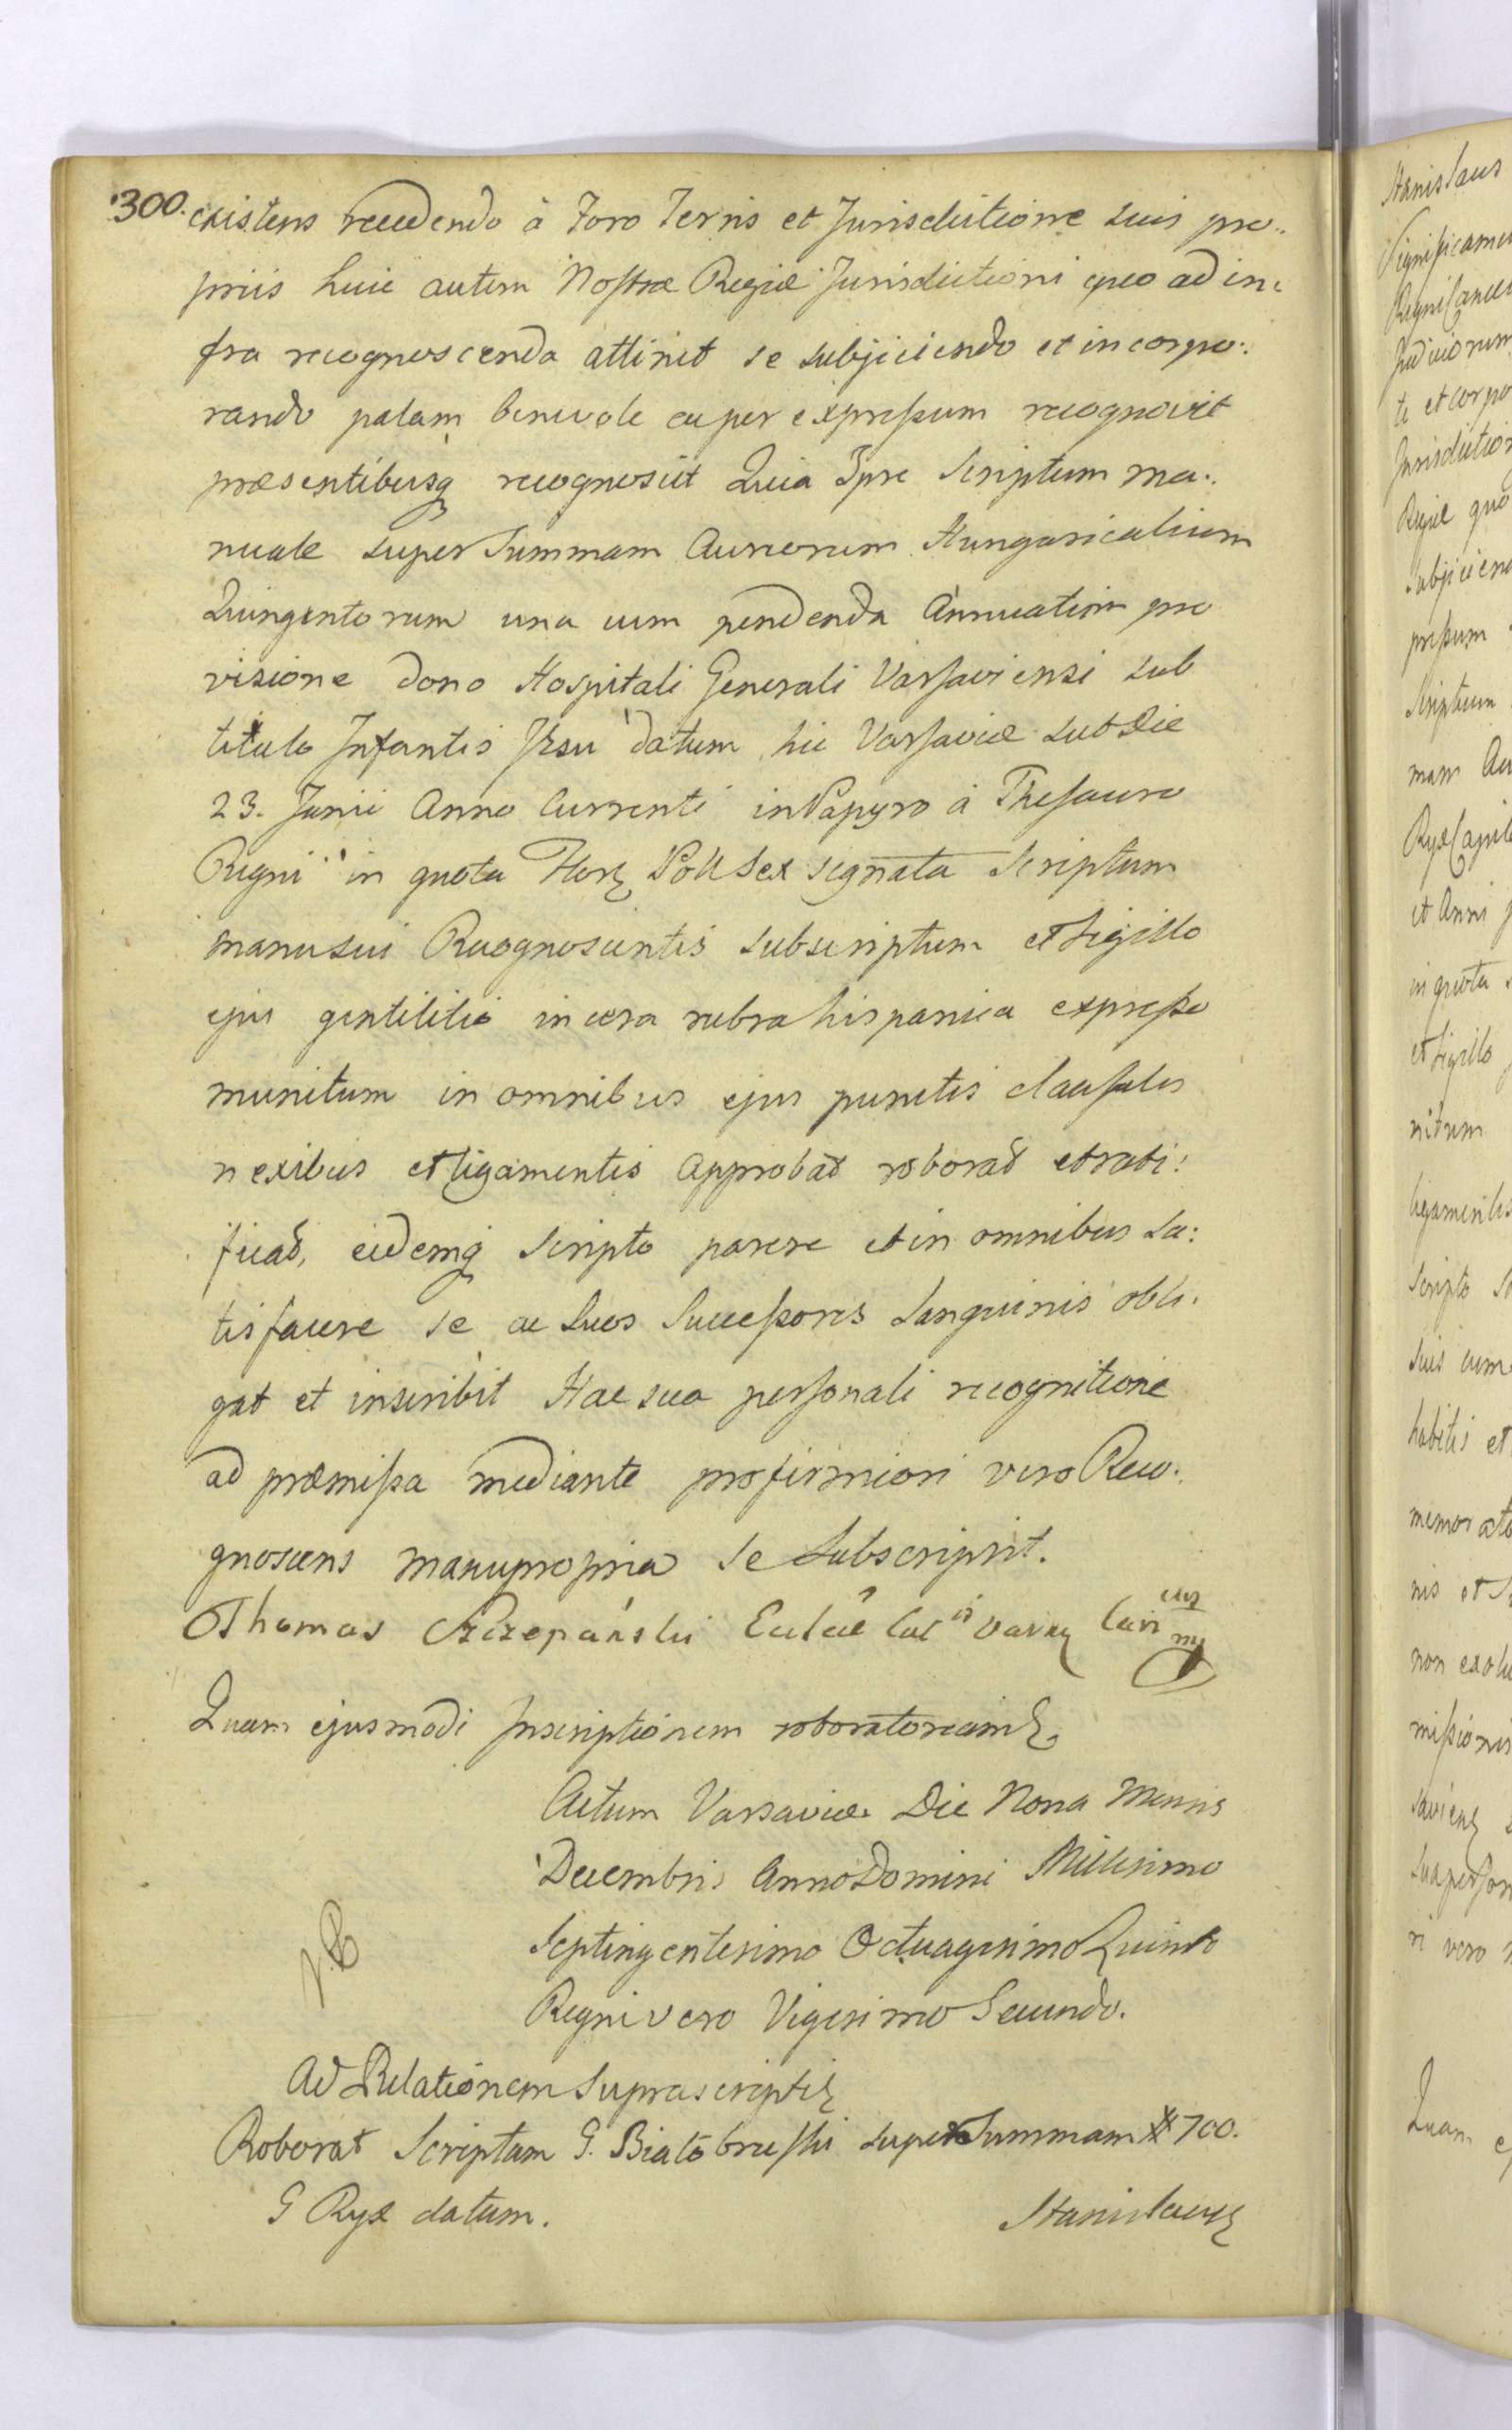 300. existens recedendo à Foro Terris et Jurisdictione suis pro..
priis huic autem Nostræ Regiæ Jurisdictioni quo ad in:
fra recognoscenda attinet se subjiciendo et incorpo:.
rando palam benevole ac per expressum recognovit
præsentibusq recognoscit Quia Ipse Scriptum ma:.
nuale super Summam Aureorum Hungaricalium
Quingentorum una cum pendenda Annuatim pro
visione dono Hospitali Generali Varsaviensi sub
titulo Infantis Jesu datum hic Varsaviæ sub Die
23. Junii Anno Currenti in Papyro à Thesauro
Regni in quota Flor Poll Sex signata Scriptum
manu sui Recognoscentis subscriptum et Sigillo
ejus gentilitio in cera rubra hispanica expresso
munitum in omnibus ejus punctis clausulis
nexibus et ligamentis approbat roborat et rati:
ficat, eidemq Scripto parere et in omnibus sa:
tisfacere se ac suos Successores sanguinis obli.
gat et inscribit Hac sua personali recognitione
ad præmissa mediante pro firmiori vero Reco:.
gnoscens manu propria se Subscripsit.
Thomas Szczepański
Quam ejusmodi Inscriptionem roboratoriam
Actum Varsaviæ Die Nona Mensis
Decembris Anno Domini Millesimo
Septingentesimo Octuagesimo Quinto
Regni vero Vigesimo Secundo.
Ad Relationem Suprascripti
Roborat Scriptum G. Białobrzeski super Summam # 700.
G Ryx datum.
Stanislaus
Stanislaus
Jurisdiction
Scriptum
et Sigillo
Scripto
habitis et
ri vero
Quam